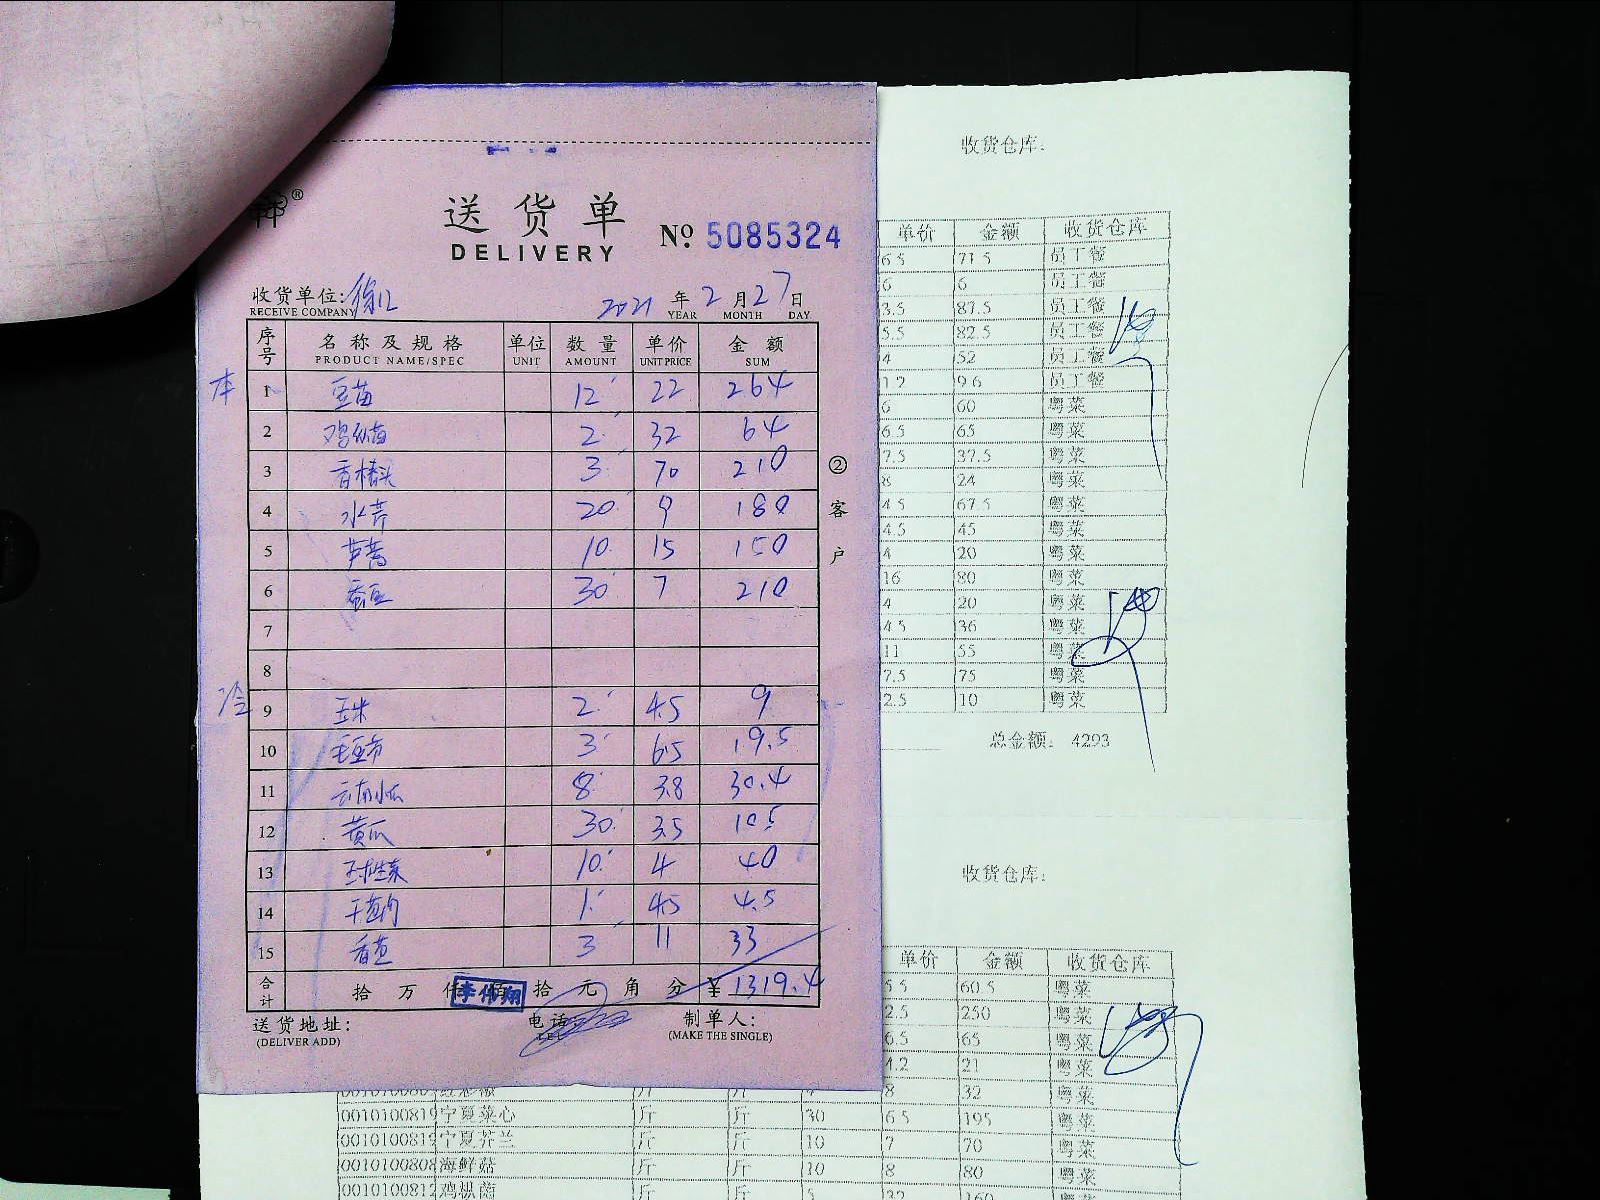 送货单
DELIVERY
No 5085324
收货单位:徐汇 2021年2月27日
RECEIVE COMPANY YEAR MONTH DAY
序号 名称及规格 单位 数量 单价 金额
PRODUCT NAME/SPEC UNIT AMOUNT UNIT PRICE SUM
本 1 豆苗 12 22 264
2 鸡枞菌 2 32 64
3 香椿头 3 70 210
4 水芹 20 9 180
5 芦蒿 10 15 150
6 蚕豆 30 7 210
7
8
冷 9 玉米 2 4.5 9
10 毛豆节 3 6.5 19.5
11 云南小瓜 8 3.8 30.4
12 黄瓜 30 3.5 105
13 球生菜 10 4 40
14 1 4.5 4.5
15 香芒 3 11 33
合计 拾万仟佰拾元角分 ¥1319.4
李伟翔
送货地址: 电话: 制单人:
(DELIVER ADD) TEL (MAKE THE SINGLE)
②客户
收货仓库:
单价 金额 收货仓库
6.5 71.5 员工餐
6 6 员工餐
3.5 87.5 员工餐
5.5 82.5 员工餐
4 52 员工餐
1.2 9.6 员工餐
6 60 粤菜
6.5 65 粤菜
7.5 37.5 粤菜
8 24 粤菜
4.5 67.5 粤菜
4.5 45 粤菜
4 20 粤菜
16 80 粤菜
4 20 粤菜
4.5 36 粤菜
11 55 粤菜
7.5 75 粤菜
2.5 10 粤菜
总金额: 4293
收货仓库:
单价 金额 收货仓库
5.5 60.5 粤菜
2.5 250 粤菜
6.5 65 粤菜
4.2 21 粤菜
8 32 粤菜
0010100819 宁夏菜心 斤 斤 30 6.5 195 粤菜
001010081 宁夏芥兰 斤 斤 10 7 70 粤菜
001010080 海鲜菇 斤 斤 10 8 80 粤菜
001010081 鸡枞菌 斤 斤 5 32 160 粤菜